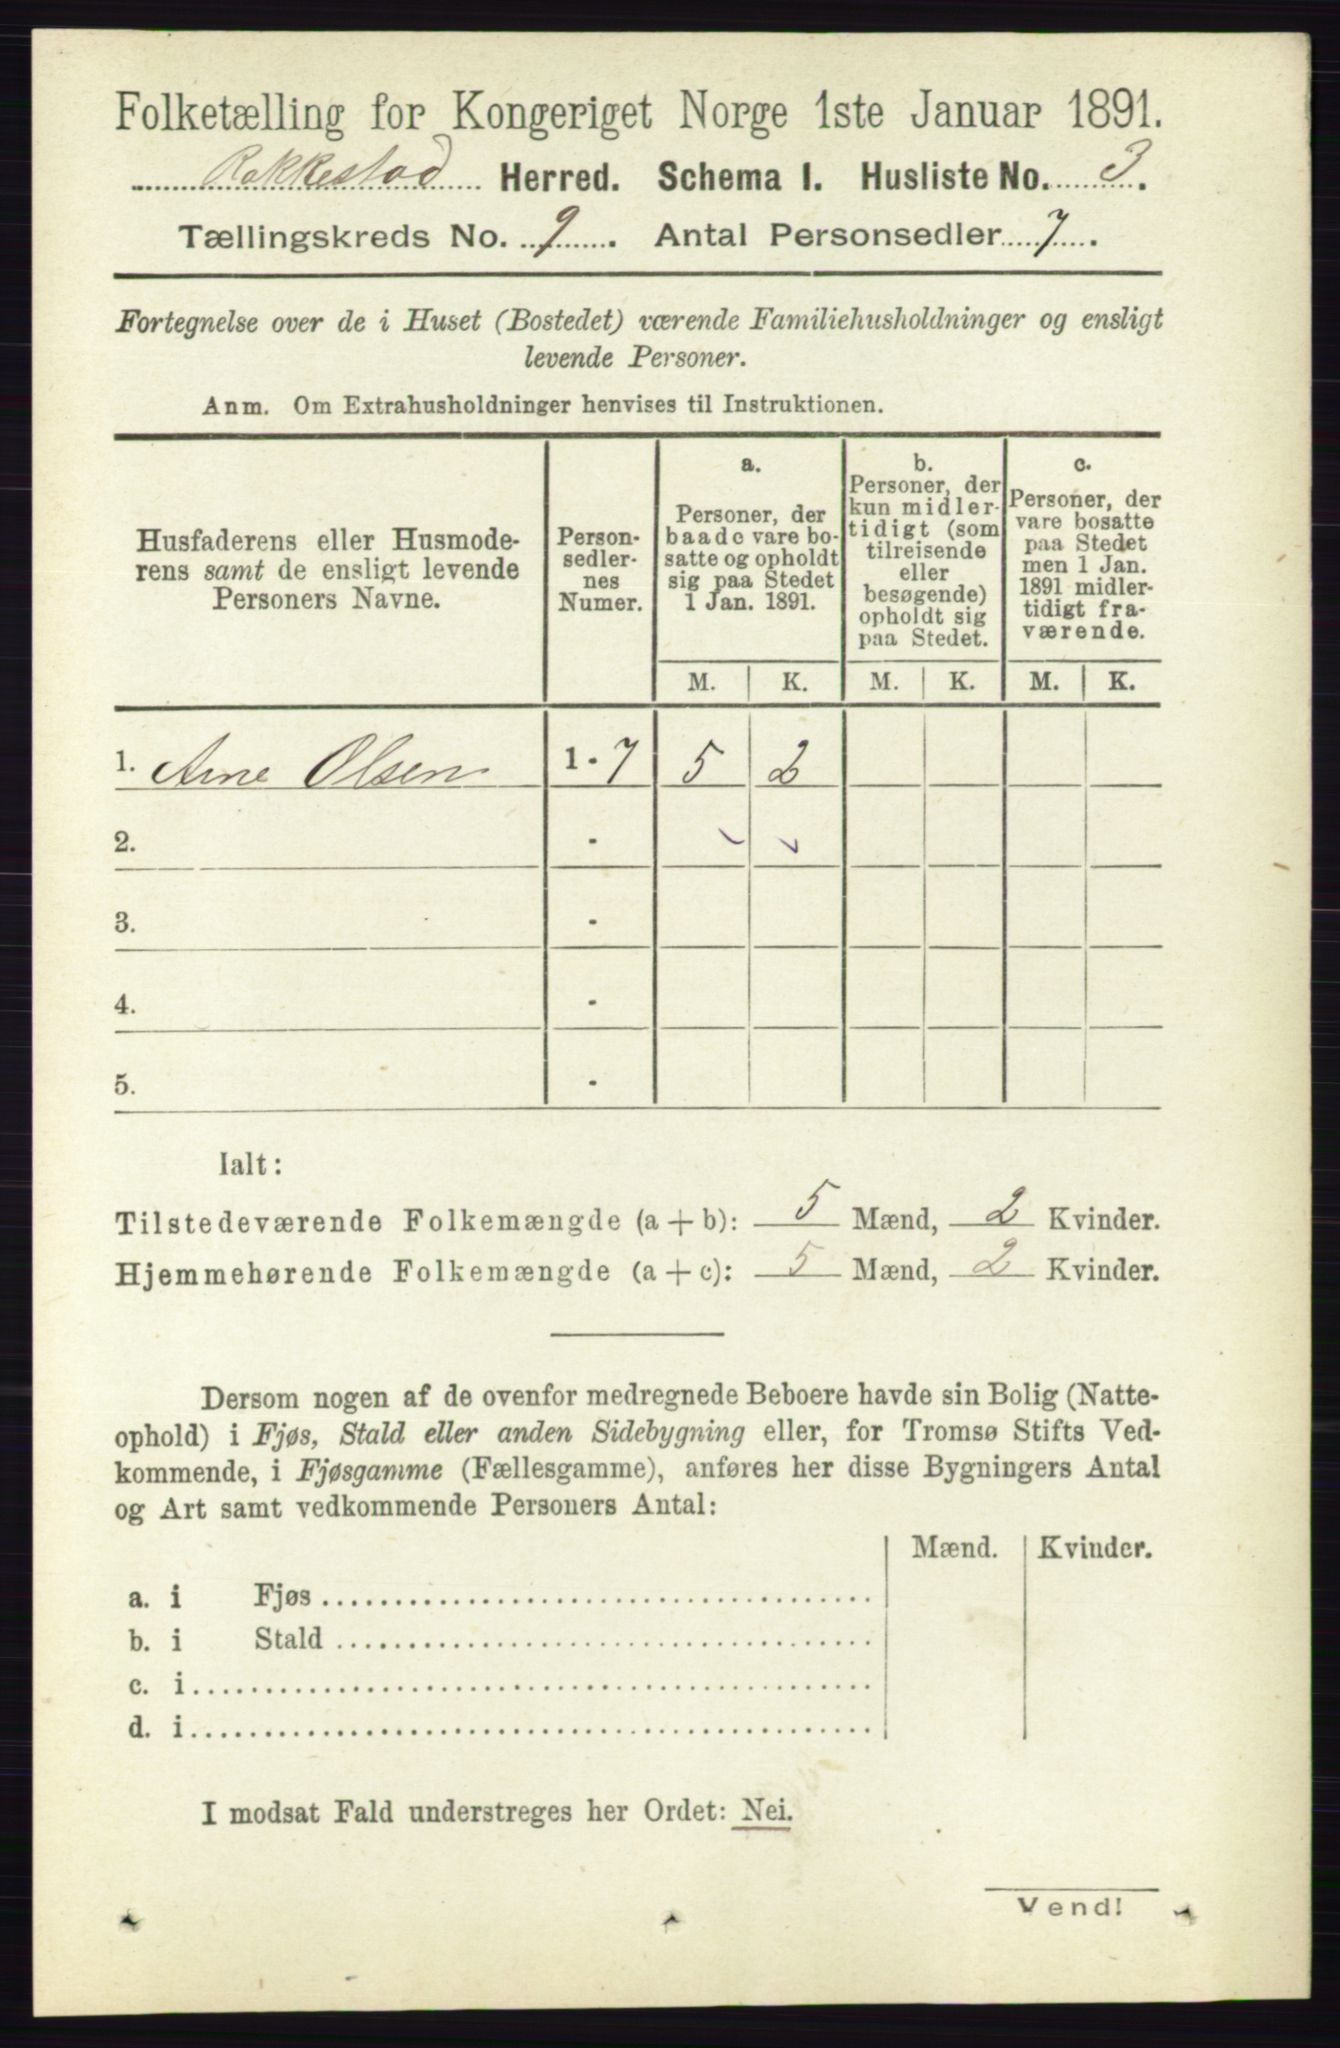 Folketælling for Kongeriget Norge 1ste Januar 1891.
Rakkestad Herred. Schema I. Husliste No. 3.
Tællingskreds No. 9. Antal Personsedler 7.
Fortegnelse over de i Huset (Bostedet) værende Familiehusholdninger og ensligt
levende Personer.
Anm. Om Extrahusholdninger henvises til Instruktionen.
Husfaderens eller Husmode-
rens samt de ensligt levende
Personers Navne.
Person-
sedler-
nes
Numer.
a.
Personer, der
baade vare bo-
satte og opholdt
sig paa Stedet
1 Jan. 1891.
b.
Personer, der
kun midler-
tidigt (som
tilreisende
eller
besøgende)
opholdt sig
paa Stedet.
c.
Personer, der
vare bosatte
paa Stedet
men 1 Jan.
1891 midler-
tidigt fra-
værende.
M. K. M. K. M. K.
1. Arne Olsen 1 - 7 5 2
2. -
3. -
4. -
5. -
Ialt:
Tilstedeværende Folkemængde (a + b): 5 Mænd, 2 Kvinder.
Hjemmehørende Folkemængde (a + c): 5 Mænd, 2 Kvinder.
Dersom nogen af de ovenfor medregnede Beboere havde sin Bolig (Natte-
ophold) i Fjøs, Stald eller anden Sidebygning eller, for Tromsø Stifts Ved-
kommende, i Fjøsgamme (Fællesgamme), anføres her disse Bygningers Antal
og Art samt vedkommende Personers Antal:
Mænd. Kvinder.
a. i Fjøs
b. i Stald
c. i
d. i
I modsat Fald understreges her Ordet: Nei.
Vend!